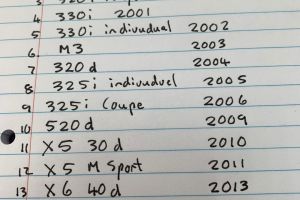 4 330i 2001
5 330i indivudual 2002
6 M3 2003
7 320d 2004
8 325i indivuduel 2005
9 325i Coupe 2006
10 520d 2009
11 X5 30d 2010
12 X5 M Sport 2011
13 X6 40d 2013